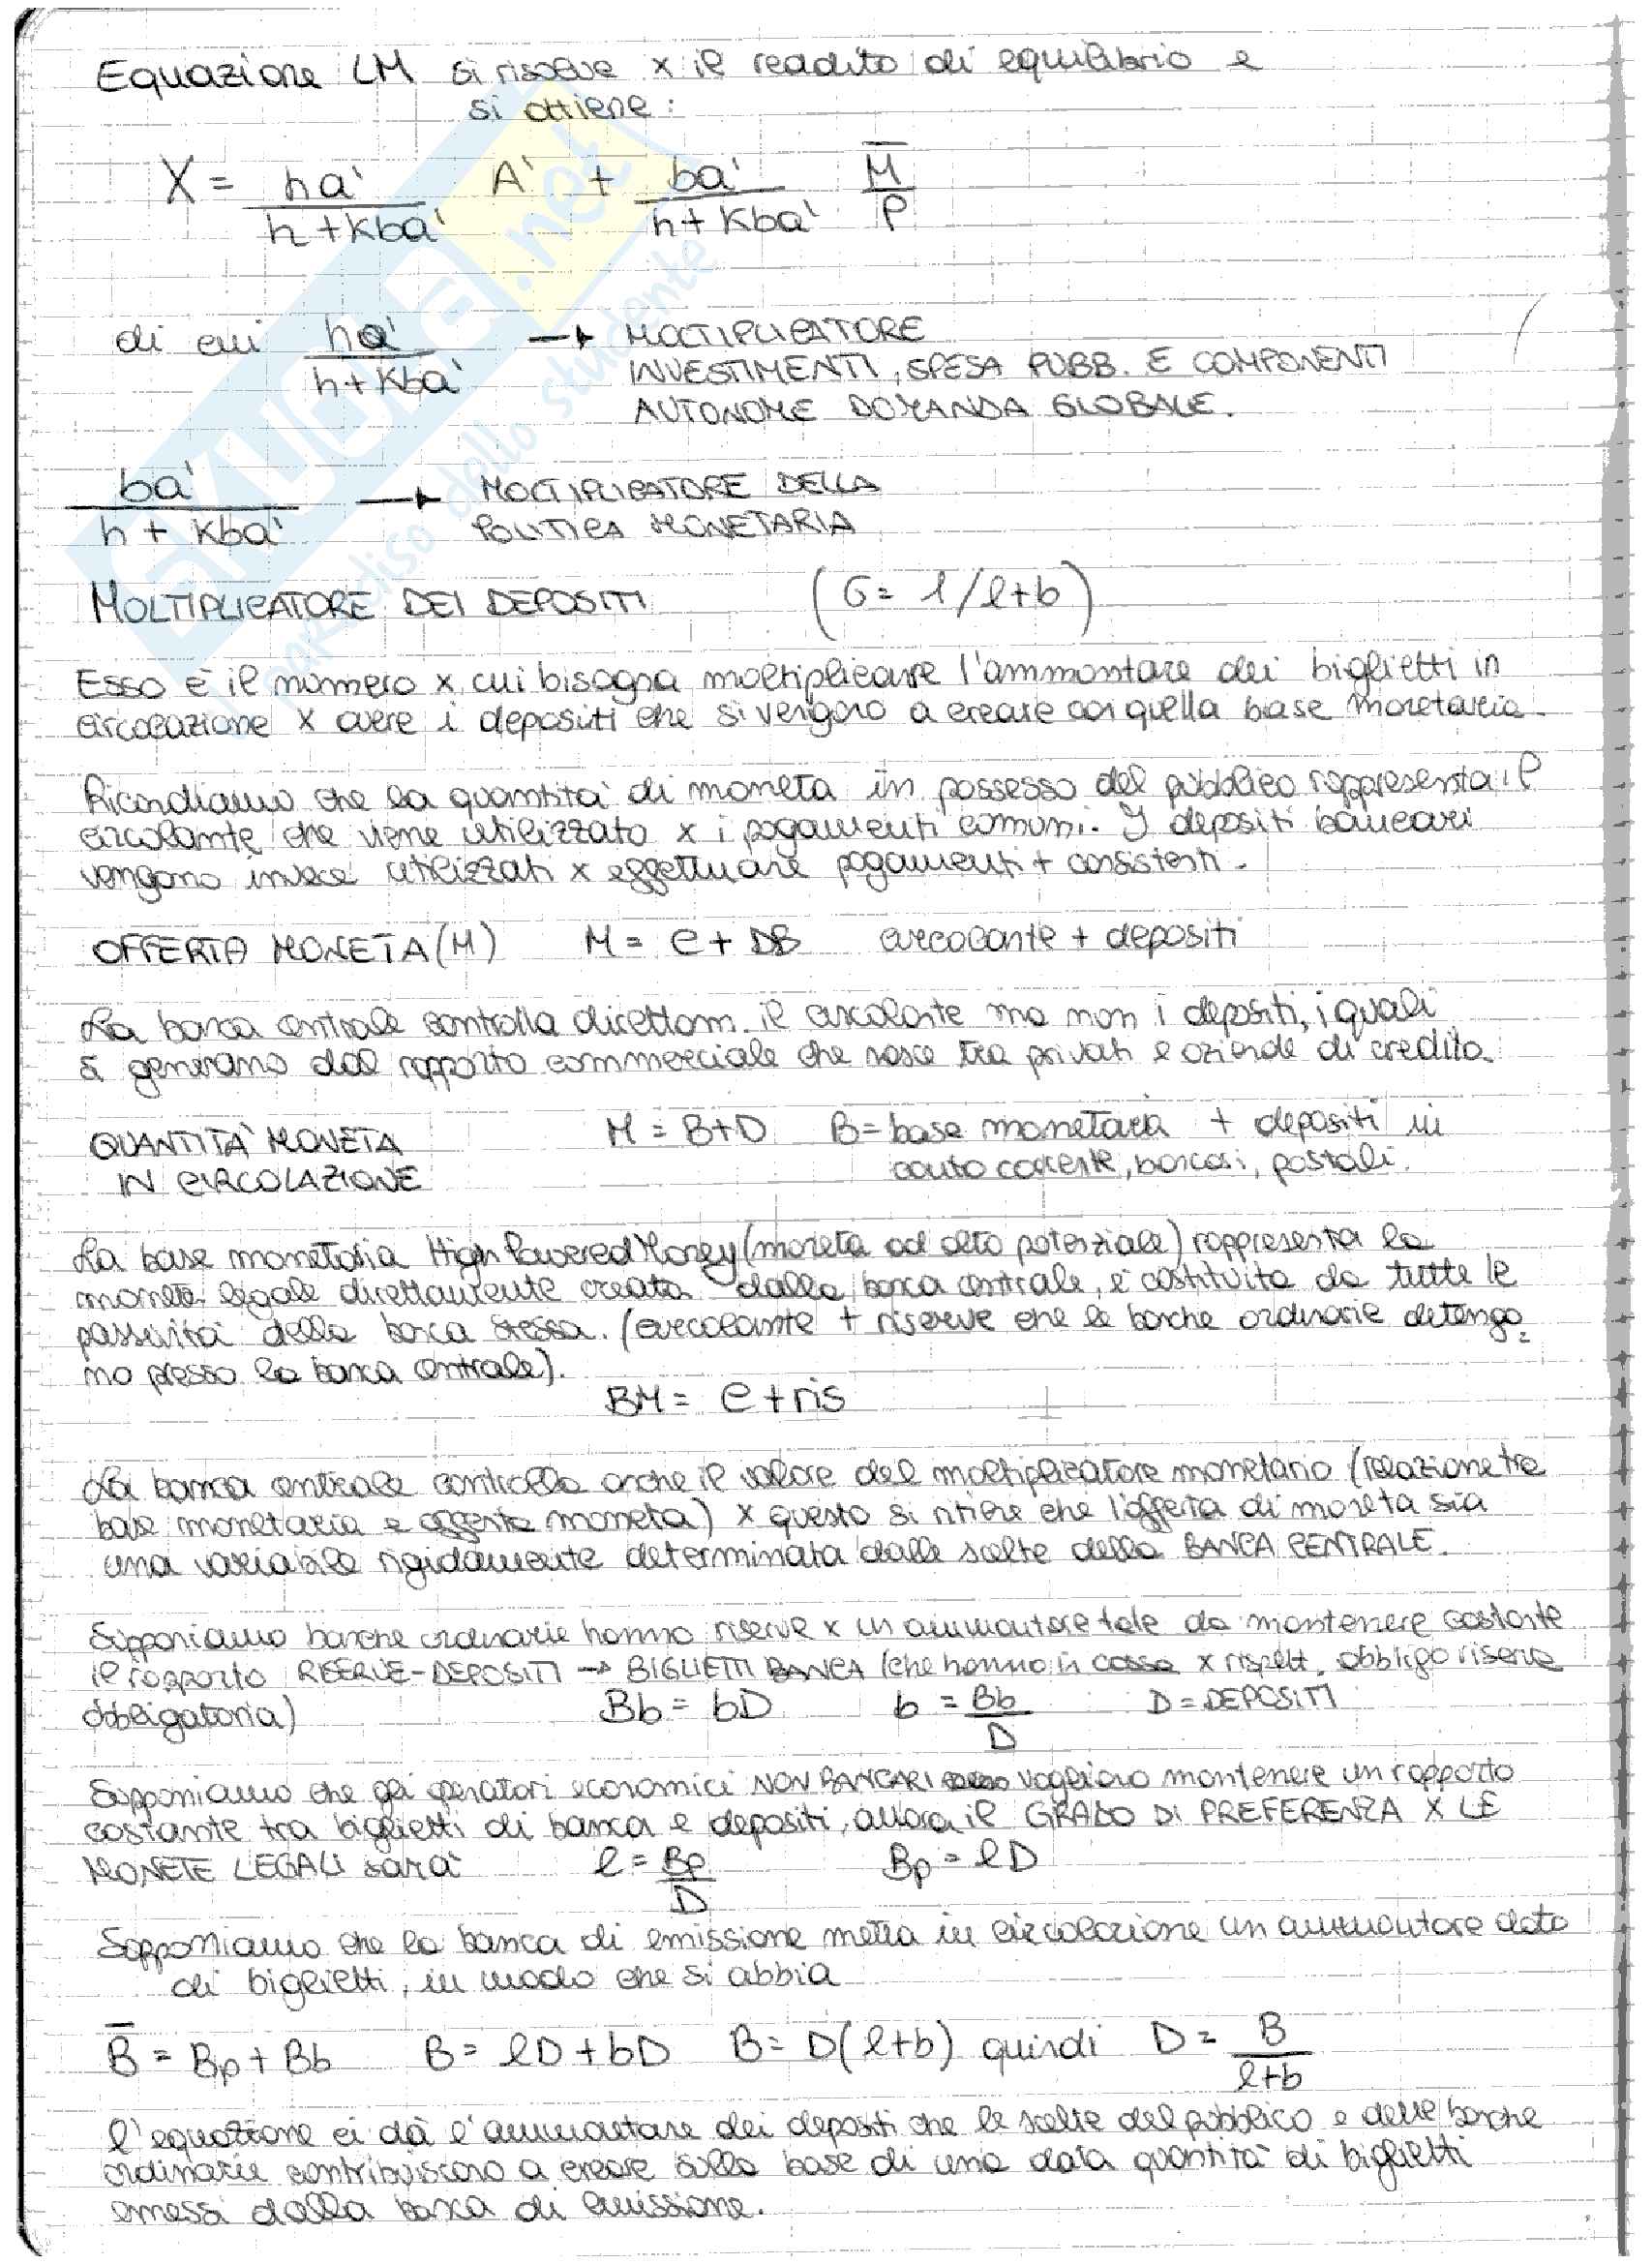 Equazione LM si risolve x il reddito di equilibrio e
si ottiene:
X = ha' / h+kba' A' + ba' / h+kba' M̅ / P
di cui ha' / h+kba' → MOLTIPLICATORE
INVESTIMENTI, SPESA PUBB. E COMPONENTI
AUTONOME DOMANDA GLOBALE.
ba' / h+kba' → MOLTIPLICATORE DELLA
POLITICA MONETARIA
MOLTIPLICATORE DEI DEPOSITI (G= 1/l+b)
Esso è il numero x cui bisogna moltiplicare l'ammontare dei biglietti in
circolazione x avere i depositi che si vengono a creare con quella base monetaria.
Ricordiamo che la quantità di moneta in possesso del pubblico rappresenta il
circolante che viene utilizzato x i pagamenti comuni. I depositi bancari
vengono invece utilizzati x effettuare pagamenti + consistenti.
OFFERTA MONETA (M) M = C + DB circolante + depositi
La banca centrale controlla direttam. il circolante ma non i depositi, i quali
si generano dal rapporto commerciale che nasce tra privati e aziende di credito.
QUANTITÀ MONETA M = B+D B = base monetaria + depositi in
IN CIRCOLAZIONE conto corrente, bancari, postali.
La base monetaria High Powered Money (moneta ad alto potenziale) rappresenta la
moneta legale direttamente creata dalla banca centrale, e' costituita da tutte le
passività della banca stessa. (circolante + riserve che le banche ordinarie detengo=
no presso la banca centrale).
BM = C + ris
La banca centrale controlla anche il valore del moltiplicatore monetario (relazione tra
base monetaria e offerta moneta) x questo si ritiene che l'offerta di moneta sia
una variabile rigidamente determinata dalle scelte della BANCA CENTRALE.
Supponiamo banche ordinarie hanno riserve x un ammontare tale da mantenere costante
il rapporto RISERVE-DEPOSITI → BIGLIETTI BANCA (che hanno in cassa x rispett. obbligo riserva
obbligatoria) Bb = bD b = Bb / D D = DEPOSITI
Supponiamo che gli operatori economici NON BANCARI vogliono mantenere un rapporto
costante tra biglietti di banca e depositi, allora il GRADO DI PREFERENZA X LE
MONETE LEGALI sarà l = Bp / D Bp = lD
Supponiamo che la banca di emissione metta in circolazione un ammontare dato
di biglietti, in modo che si abbia
B̅ = Bp + Bb B = lD + bD B = D(l+b) quindi D = B / l+b
l'equazione ci dà l'ammontare dei depositi che le scelte del pubblico e delle banche
ordinarie contribuiscono a creare sulla base di una data quantità di biglietti
emessi dalla banca di emissione.
SKUOLA.net
il paradiso dello studente